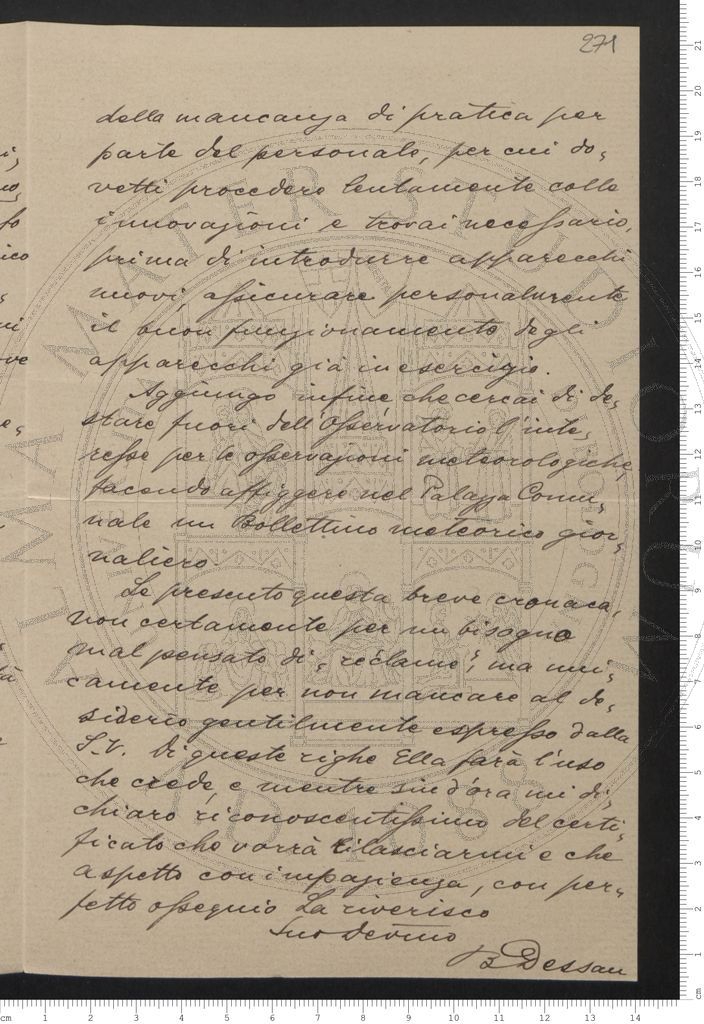 271
della mancanza di pratica per
parte del personale, per cui do„
vetti procedere lentamente colle
innovazioni e trovai necessario,
prima di introdurre apparecchi
nuovi, assicurare personalmente
il buon funzionamento degli
apparecchi già in esercizio.
Aggiungo infine che cercai di de„
stare fuori dell'Osservatorio l'inte„
resse per le osservazioni meteorologiche,
facendo affiggere nel Palazzo Comu„
nale un Bollettino meteorico gior„
naliero.
Le presento questa breve cronaca,
non certamente per un bisogno
mal pensato di „réclame", ma uni„
camente per non mancare al de„
siderio gentilmente espresso dalla
S.V. Di queste righe Ella farà l'uso
che crede, e mentre sin d'ora mi di„
chiaro riconoscentissimo del certi„
ficato che vorrà rilasciarmi e che
aspetto con impazienza, con per„
fetto ossequio La riverisco
Suo Devmo
B Dessau